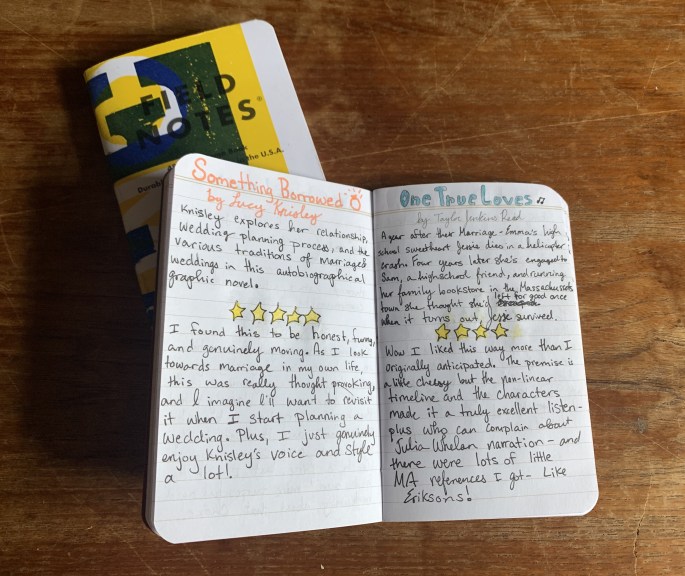 FIELD
NOTES®
the U.S.A.
Something Borrowed
by Lucy Knisley
Knisley explores her relationship,
wedding planning process, and the
various traditions of marriage
weddings in this autobiographical
graphic novel.
I found this to be honest, funny,
and genuinely moving. As I look
towards marriage in my own life,
this was really thought provoking,
and I imagine I'll want to revisit
it when I start planning a
wedding. Plus, I just genuinely
enjoy Knisley's voice and style
a lot!
One True Loves
by Taylor Jenkins Reid
A year after their Marriage - Emma's high
school sweetheart Jessie dies in a helicopter
crash. Four years later she's engaged to
Sam, a highschool friend, and running
her family bookstore in the Massachussets
town she thought she'd left for good once
when it turns out, Jesse survived.
Wow I liked this way more than I
originally anticipated. The premise is
a little cheesy but the non-linear
timeline and the characters
made it a truly excellent listen-
plus who can complain about
Julia Whelan narration - and
there were lots of little
MA references I got - Like
Eriksons!